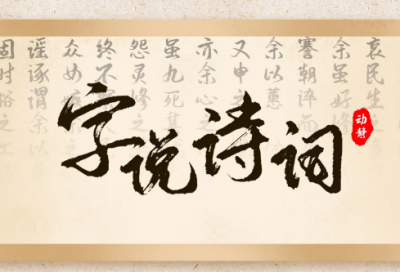 字说诗词
动静
哀民生
余虽好修
謇朝谇而
余以蕙
又申之
亦余心
虽九死其
怨灵修之
终不
众女
谣诼谓余以
固时俗之工